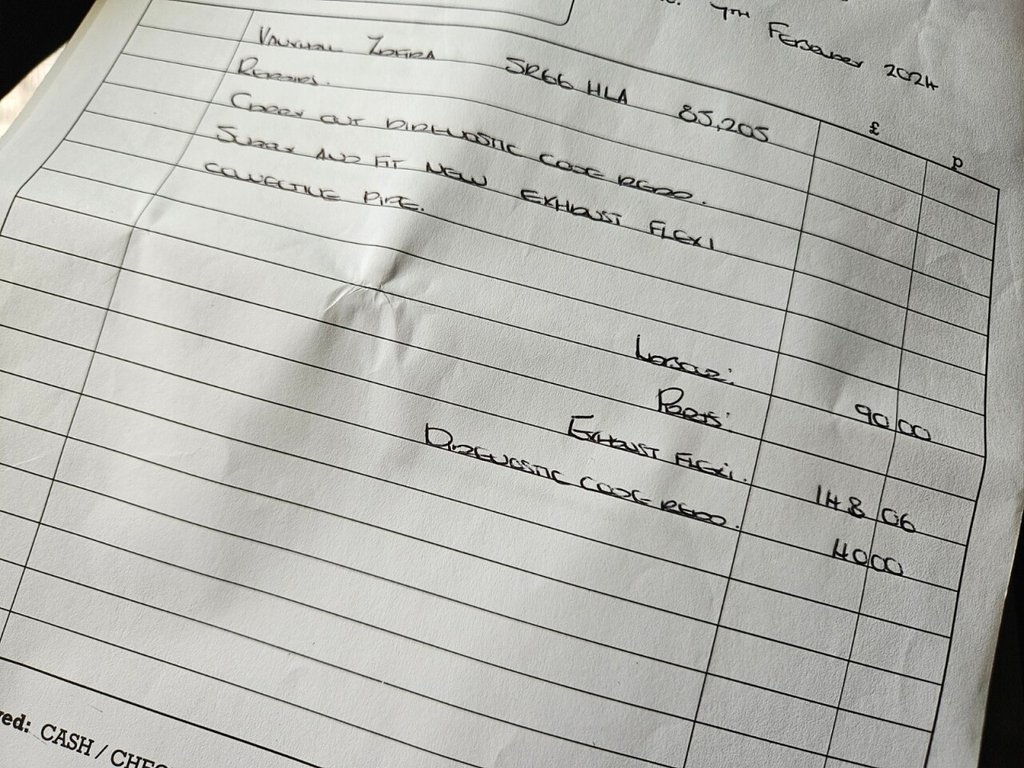 7TH February 2024
£ P
Vauxhall Zafira SR66 HLA 85,205
Repairs.
Carry out Diagnostic Code Read.
Supply and Fit New Exhaust Flexi
Connective Pipe.
Labour:
90 00
Parts:
Exhaust Flexi. 148 06
Diagnostic Code Read. 40 00
CASH /